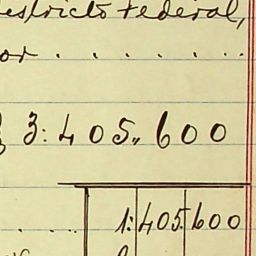 Districto Federal,
or . . . . . . .
$ 3:405,,600
. . . . 1:405.600